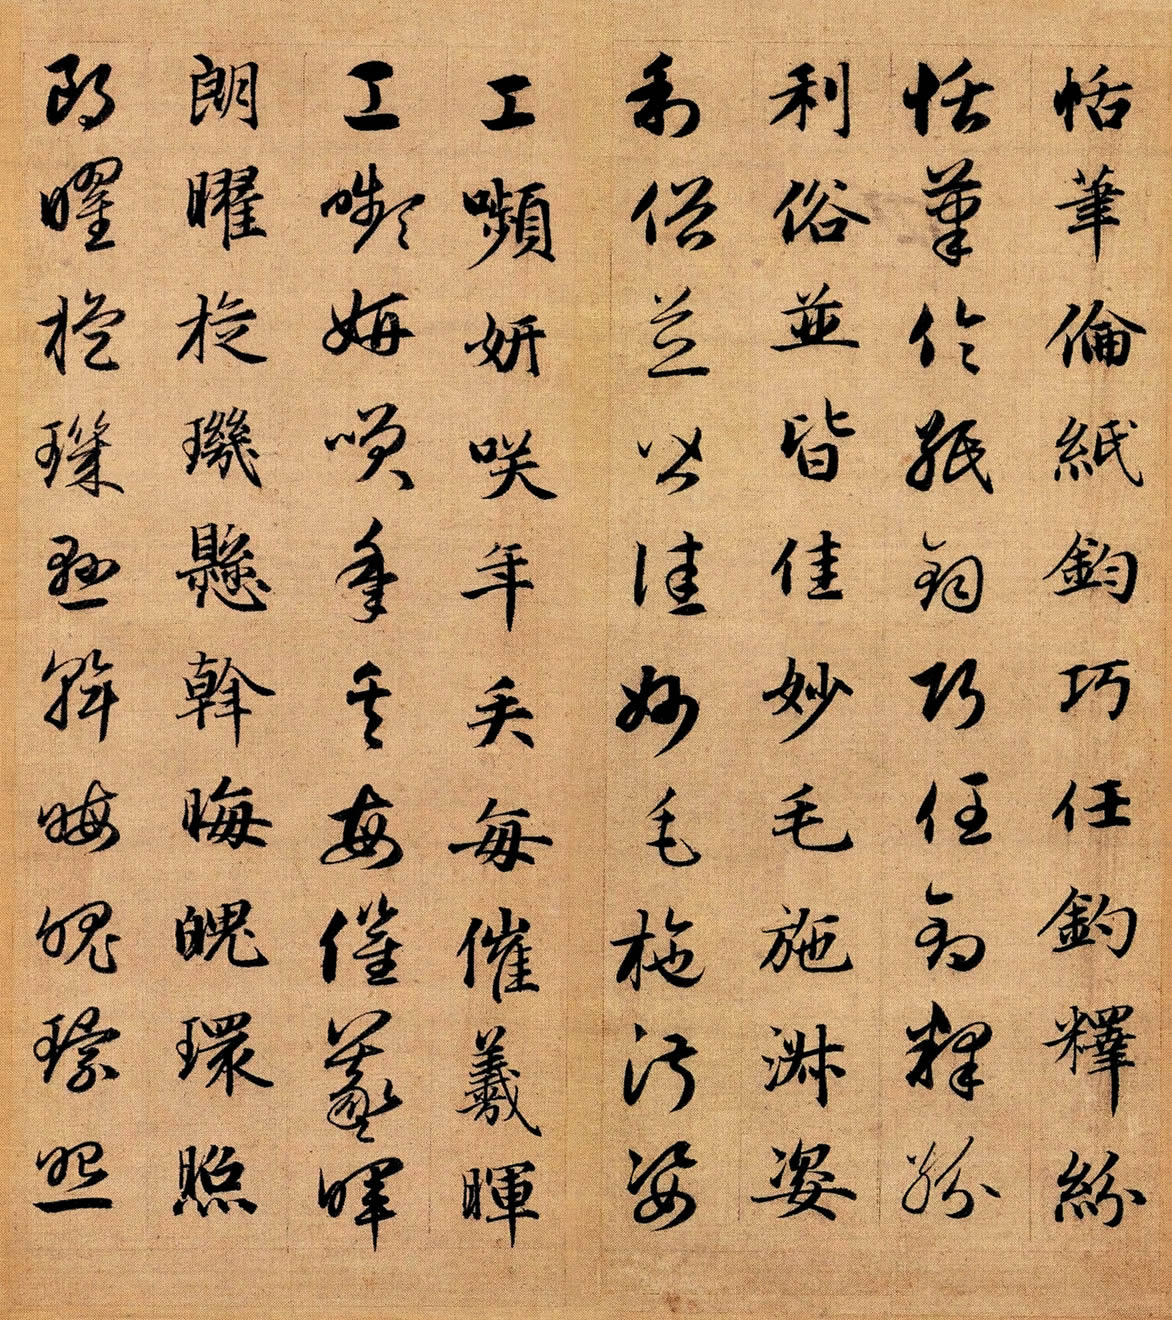 恬筆倫紙鈞巧任釣釋紛
恬筆倫紙鈞巧任釣釋紛
利俗並皆佳妙毛施淑姿
利俗並皆佳妙毛施淑姿
工嚬妍咲年矢每催羲暉
工嚬妍咲年矢每催羲暉
朗曜旋璣懸斡晦魄環照
朗曜旋璣懸斡晦魄環照